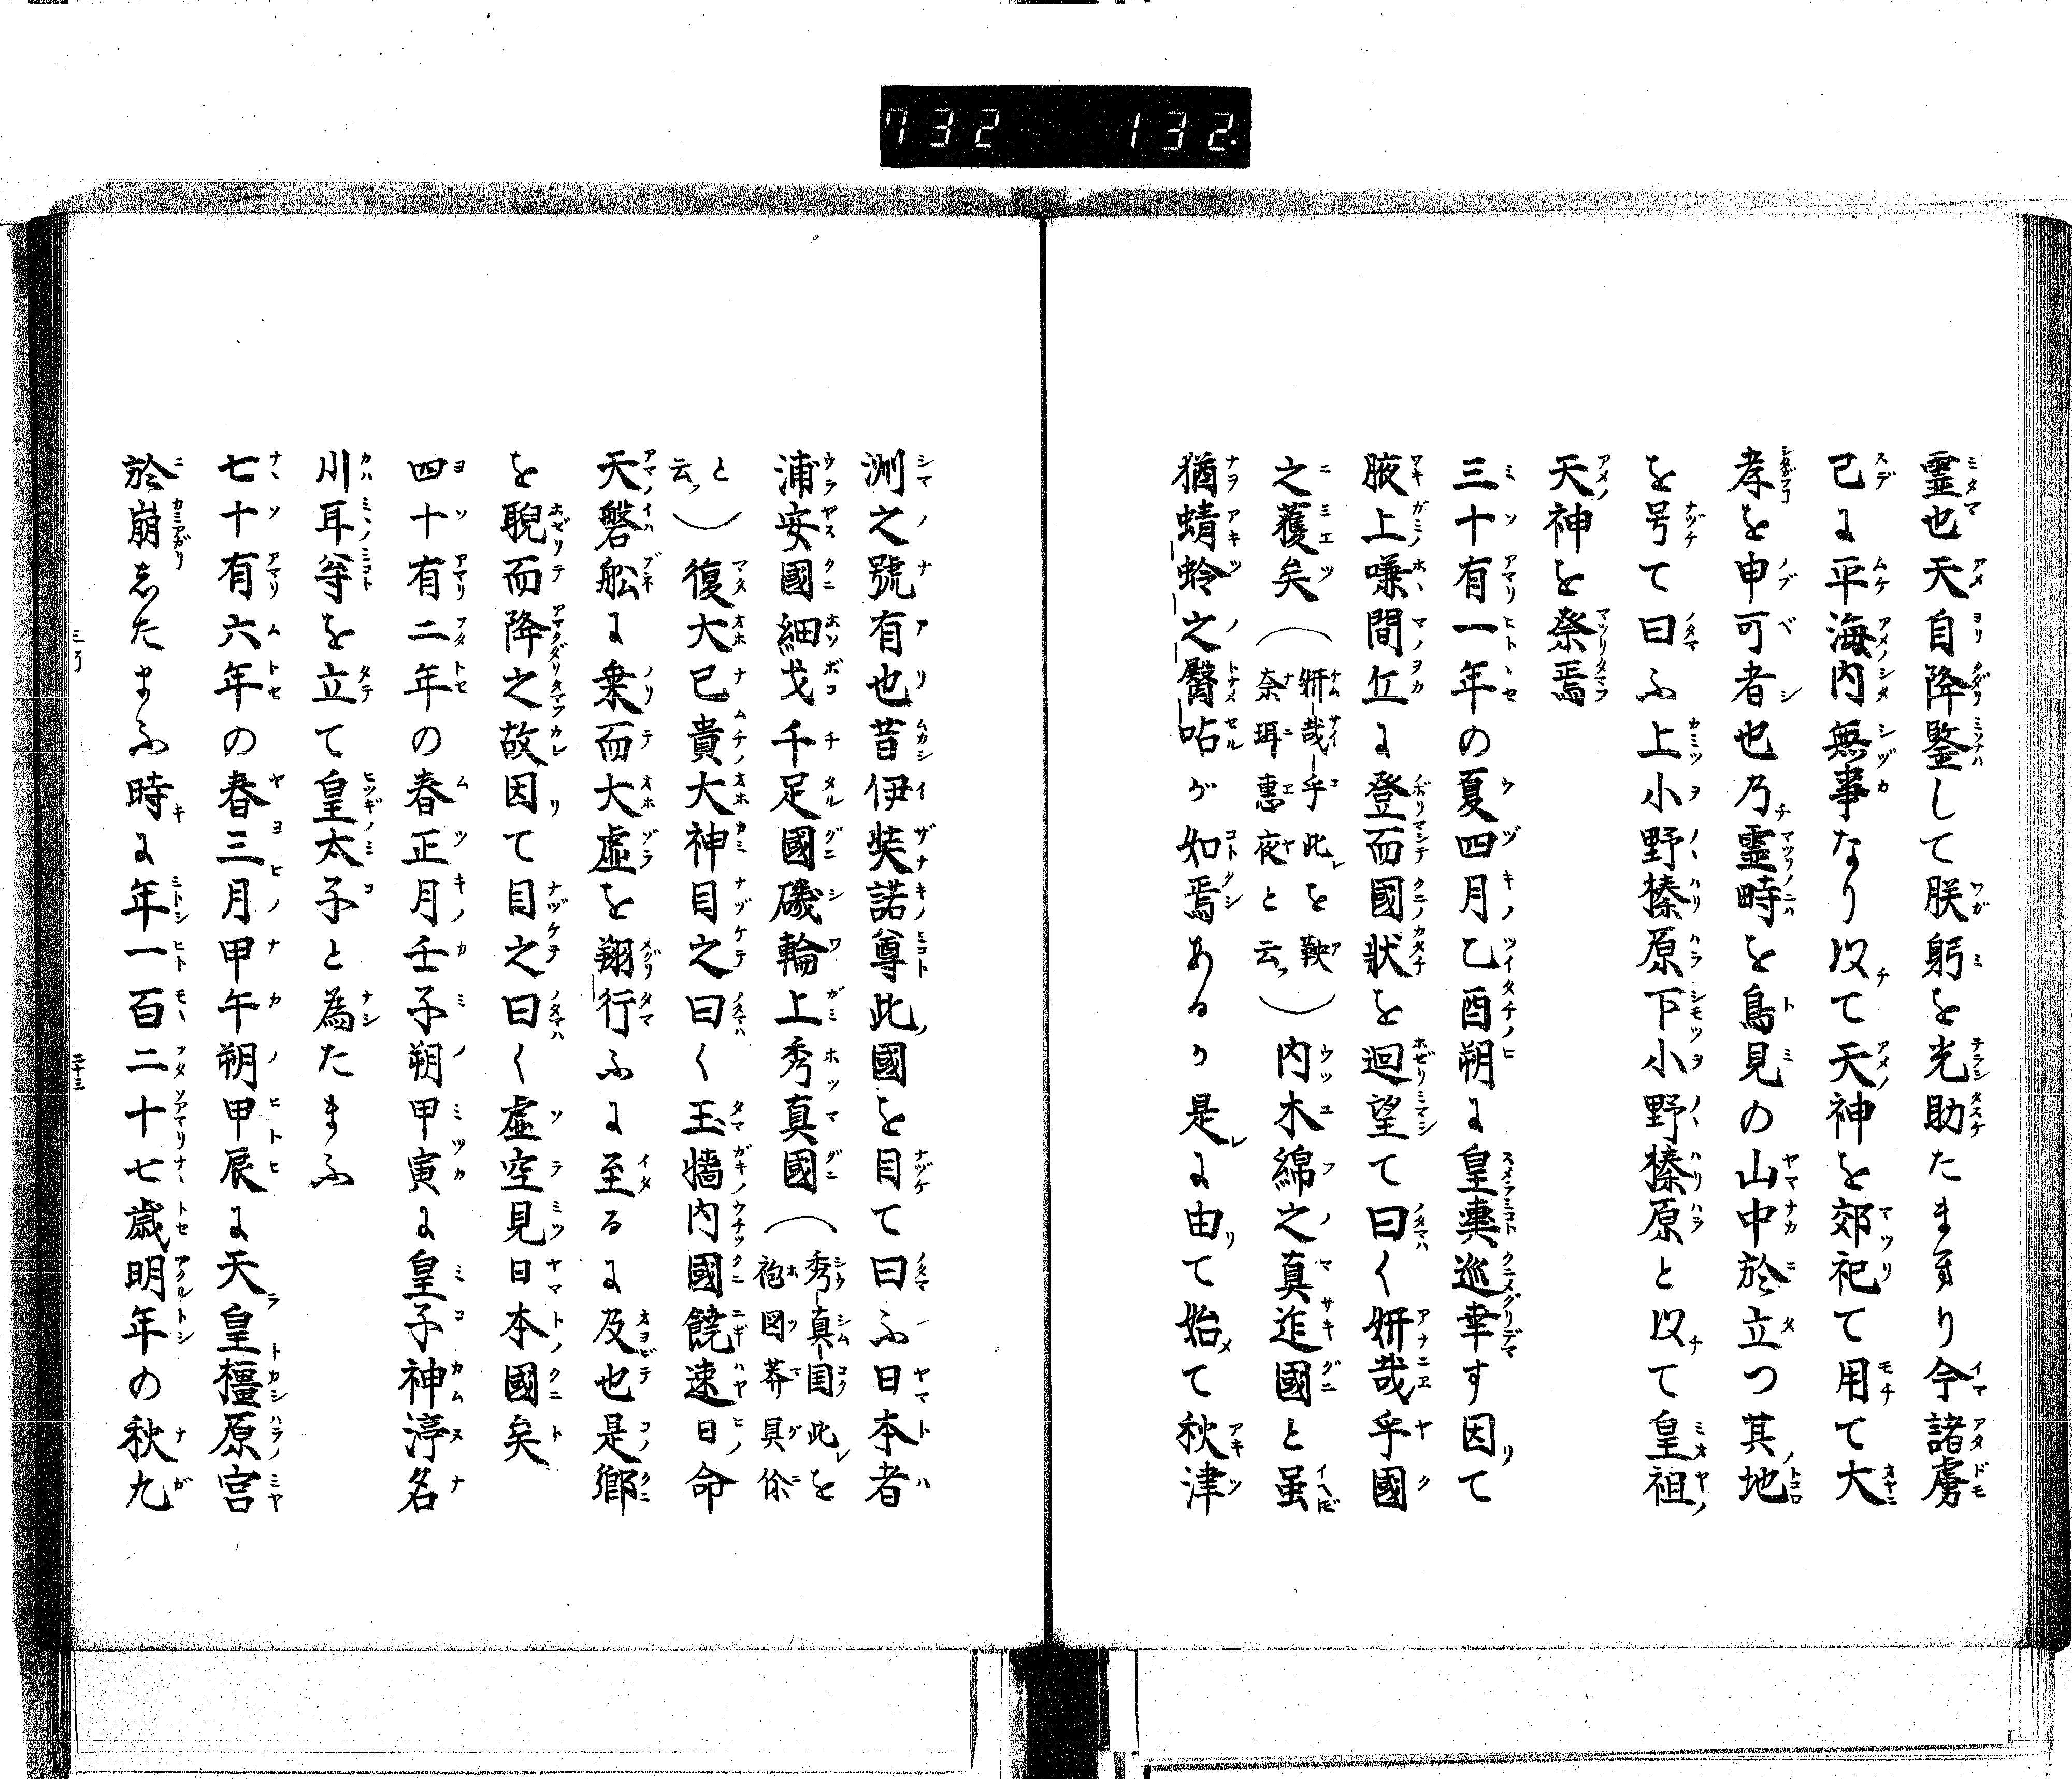 732 132.
霊也天自降鑒して朕躬を光助たまけり今諸虜
已に平海内無事なり以て天神を郊祀て用て大
孝を申可者也乃霊畤を鳥見の山中於立つ其地
を号て曰ふ上小野榛原下小野榛原と以て皇祖
天神を祭焉
三十有一年の夏四月乙酉朔に皇輿巡幸す因て
腋上嗛間丘に登而國狀を迴望て曰く妍哉乎國
之獲矣(妍哉乎此を鞅奈珥惠夜と云)内木綿之真迮國と虽
猶蜻蛉之臀呫が如焉あるか是に由て始て秋津
洲之號有也昔伊奘諾尊此國を目て曰ふ日本者
浦安國細戈千足國磯輪上秀真國(秀真国此を袍図莽具儞
と云)復大己貴大神目之曰く玉牆内國饒速日命
天磐舩に乗而大虚を翔行ふに至るに及也是鄉
を睨而降之故因て目之曰く虚空見日本國矣
四十有二年の春正月壬子朔甲寅に皇子神渟名
川耳尊を立て皇太子と為たまふ
七十有六年の春三月甲午朔甲辰に天皇橿原宮
於崩志たまふ時に年一百二十七歳明年の秋九